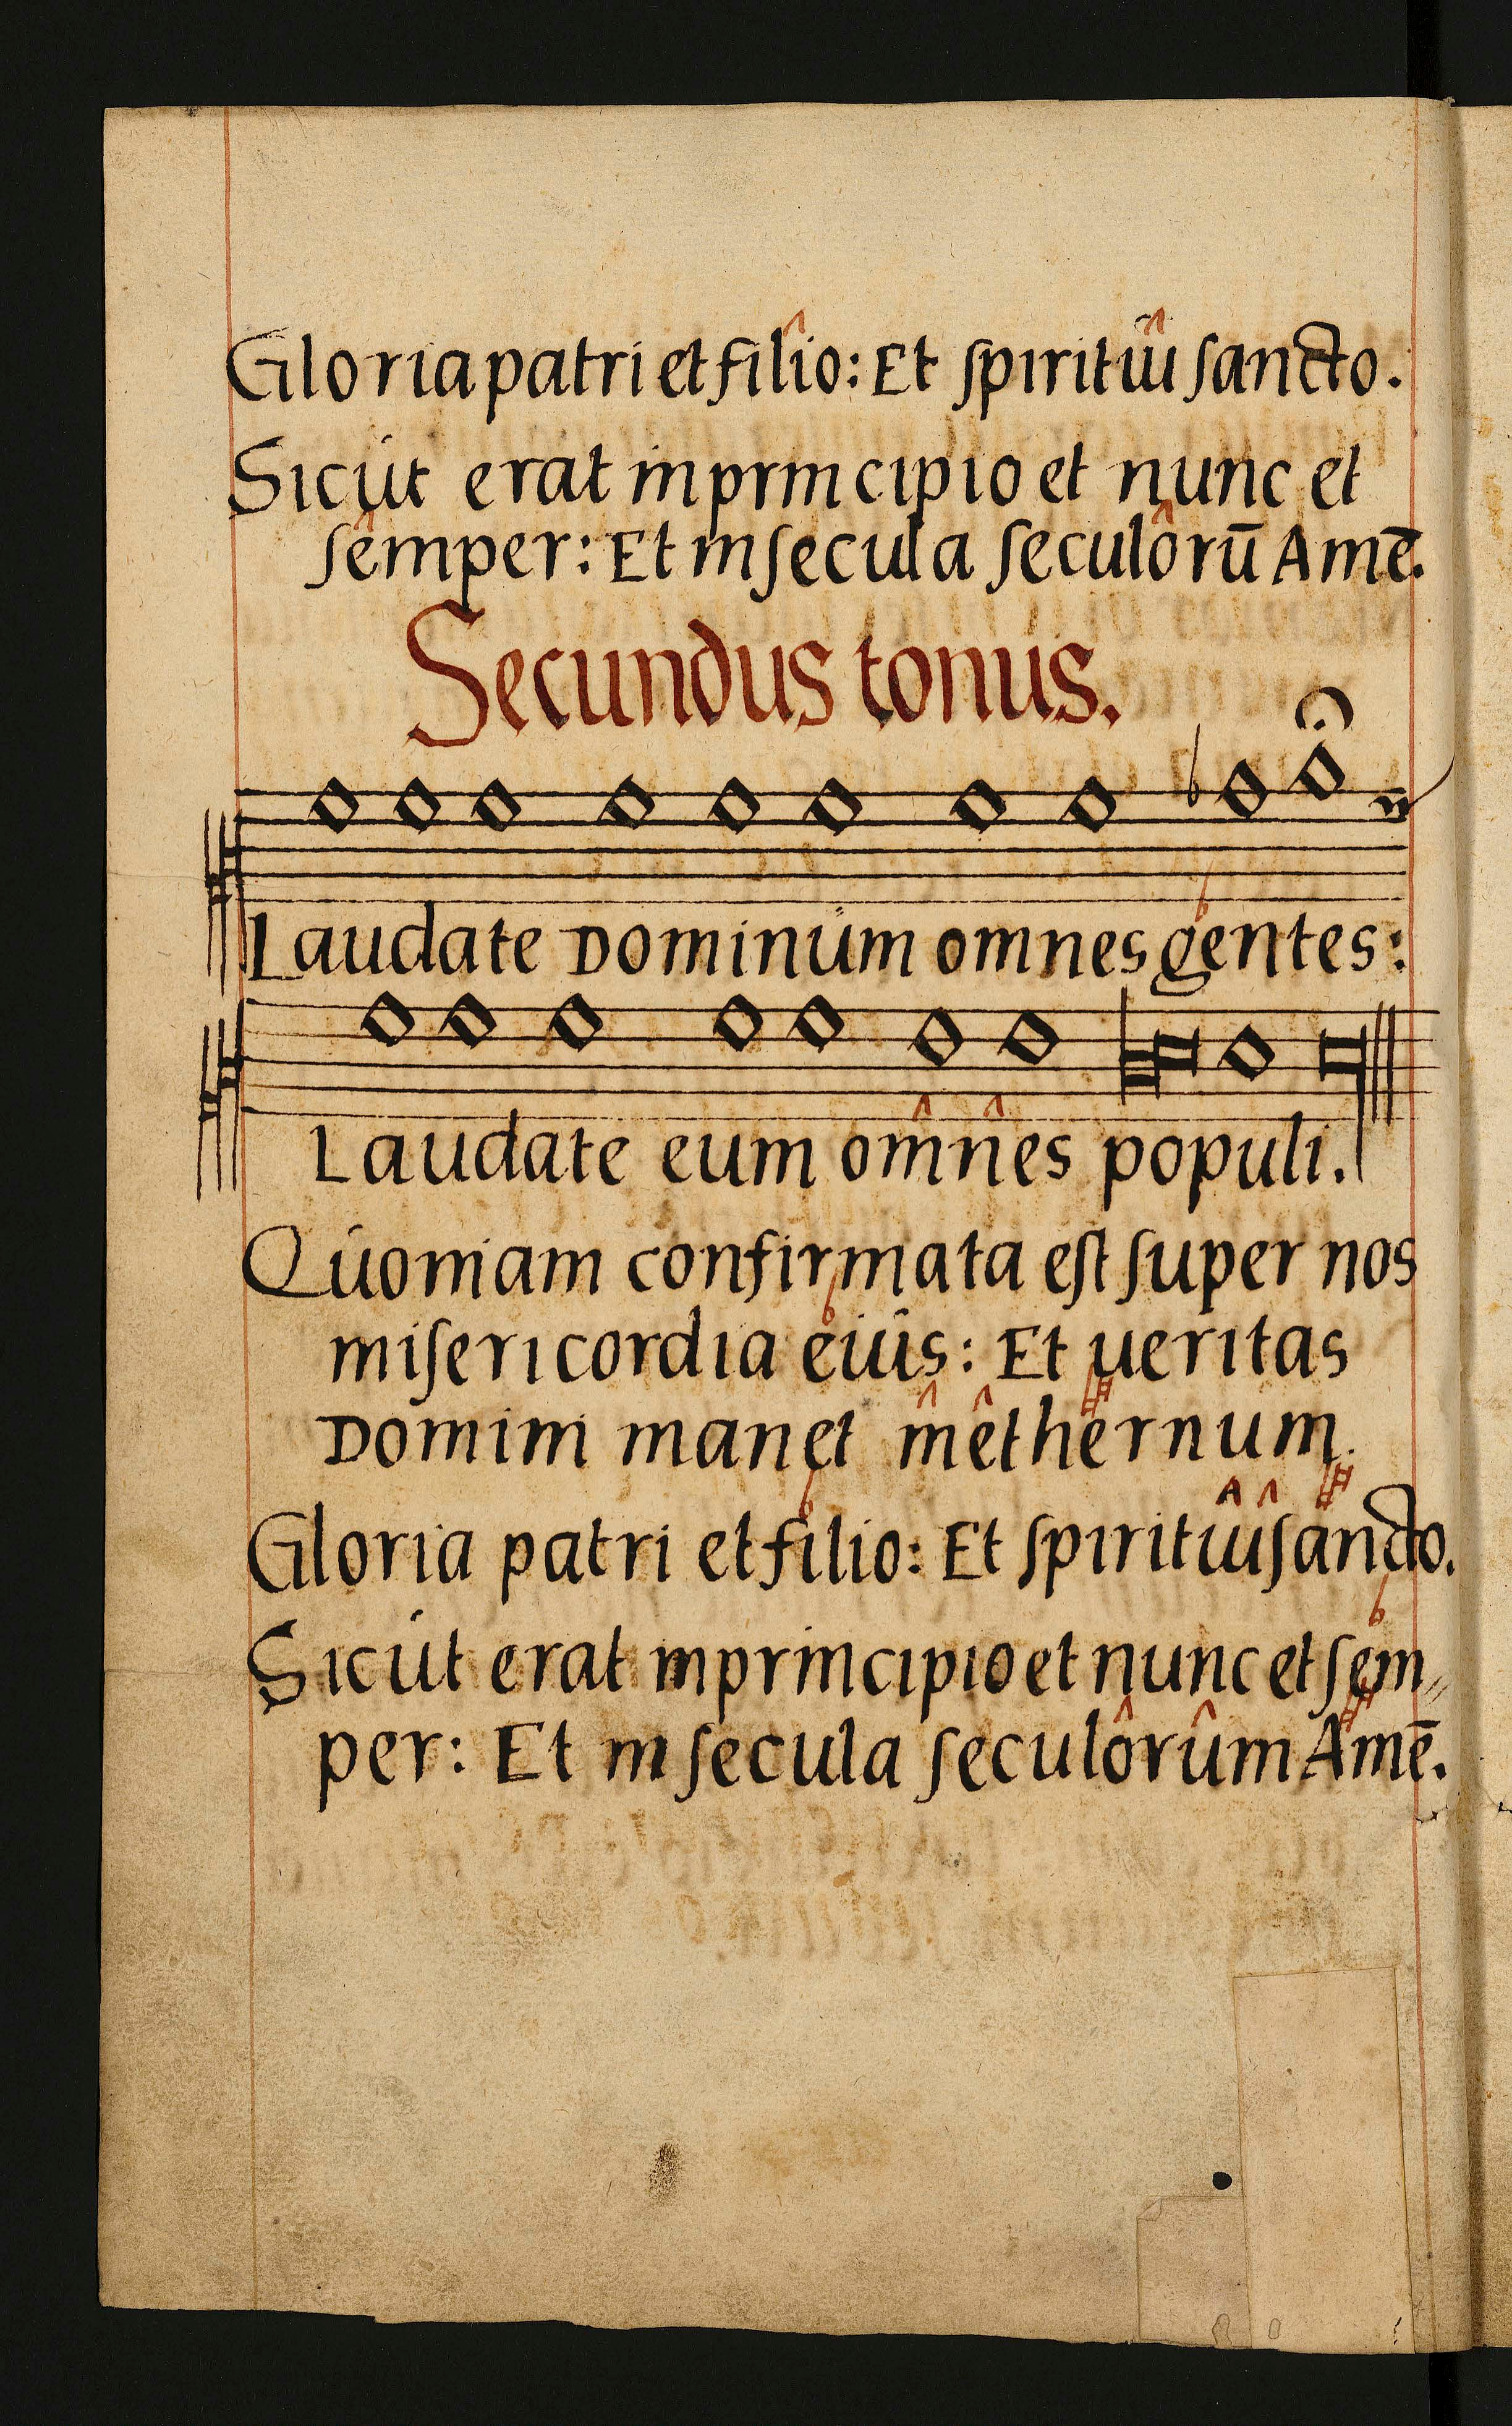 Gloria patri et filio: Et spiritui sancto.
Sicut erat in principio et nunc et
semper: Et in secula seculorū Amē.
Secundus tonus.
Laudate Dominum omnes gentes:
Laudate eum omnes populi.
Quoniam confirmata est super nos
misericordia eius: Et ueritas
Domini manet in ethernum.
Gloria patri et filio: Et spiritui sancto.
Sicut erat in principio et nunc et sem„
per: Et in secula seculorum Amē.